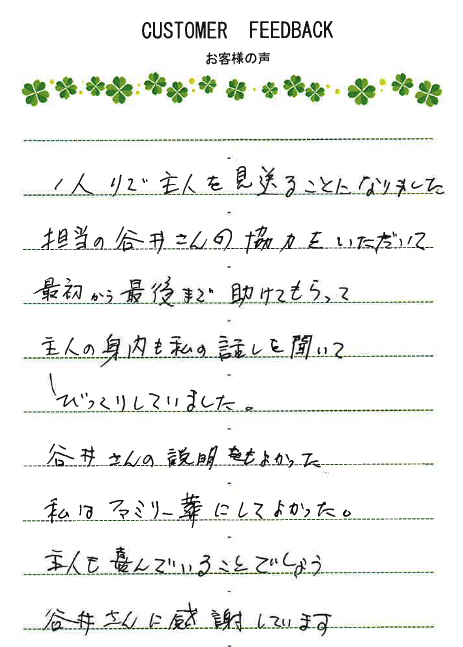 CUSTOMER FEEDBACK
お客様の声
1人りで主人を見送ることになりました
担当の谷井さんの協力をいただいて
最初から最後まで助けてもらって
主人の身内も私の話しを聞いて
びっくりしていました。
谷井さんの説明もよかった
私はファミリー葬にしてよかった。
主人も喜んでいることでしょう
谷井さんに感謝しています